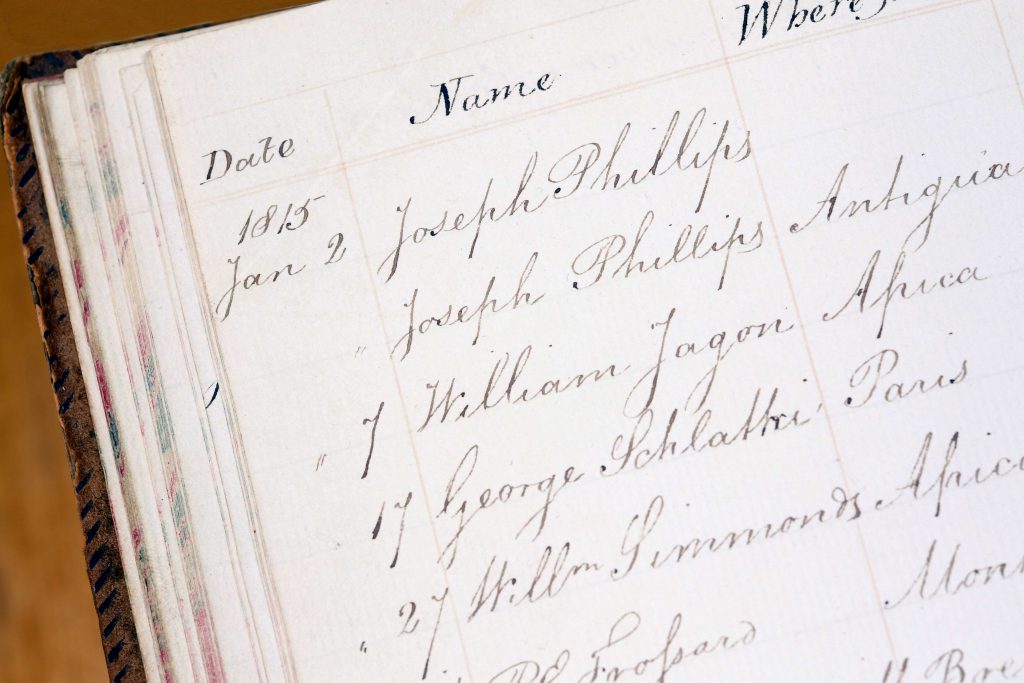 Date Name Where
1815
Jan 2 Joseph Phillips
" Joseph Phillips Antigua
" 7 William Jagon Africa
17 George Schlatter Paris
" 27 Willm Simmonds Africa
Frossard Mont
Bre